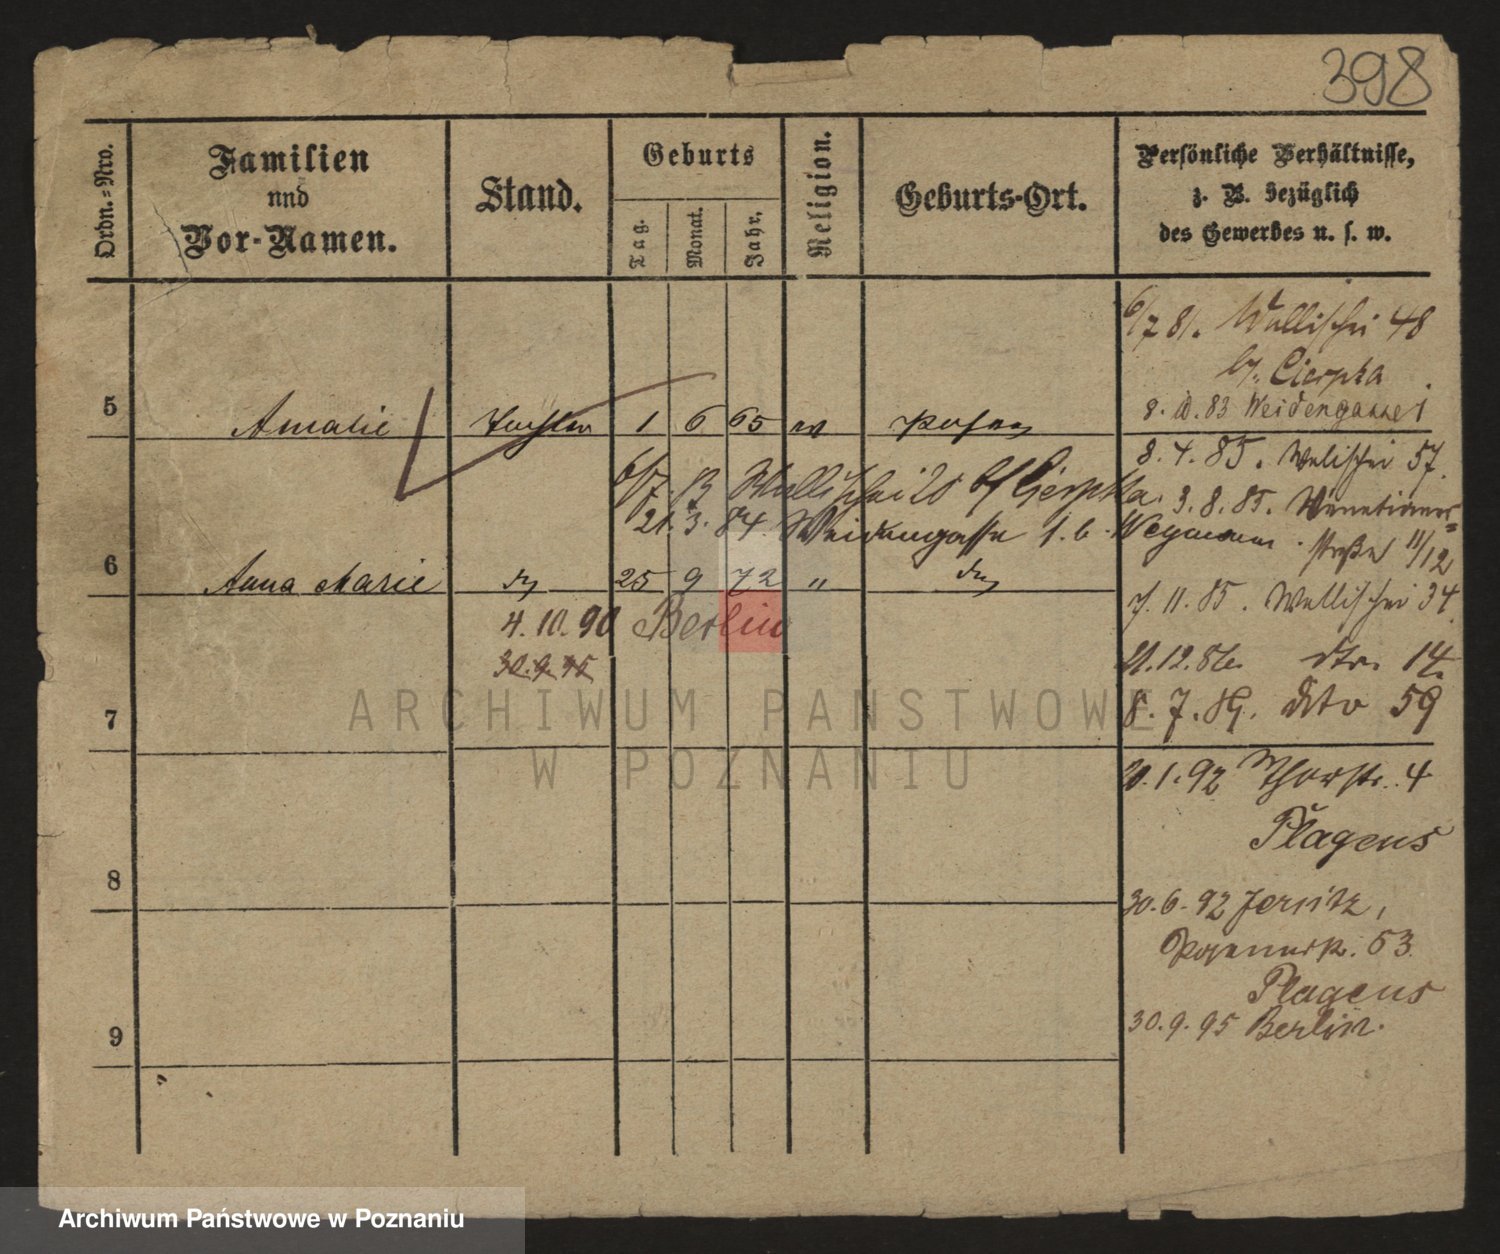 398
Ordn.=Nro.
Familien
und
Vor-Namen.
Stand.
Geburts
Tag.
Monat.
Jahr.
Religion.
Geburts-Ort.
Persönliche Verhältnisse,
z. B. bezüglich
des Gewerbes u. s. w.
6/7 81. Wallischei 48
b/. Cierpka
8. 10. 83 Weidengasse 1
5 Amalie Tochter 1 6 65 Posen
8. 4. 85. Walischei 57.
6/7. Wallischei b/ Cierpka.
3. 8. 85. Venetianer=
21. 3. 84. Weidengasse 1. b. Wegmann
straße 11/12
6 Anna Marie 25 9 72 "
7. 11. 85. Wallischei 34
4. 10. 90 Berlin
21. 12. 86. dto. 14.
30. 9. 95
7
8. 7. 89. dto 59
20. 1. 92 Thorstr. 4
Plagens
8
30. 6. 92 Jersitz,
53.
Plagens
30. 9. 95 Berlin.
9
ARCHIWUM PAŃSTWOWE
W POZNANIU
Archiwum Państwowe w Poznaniu